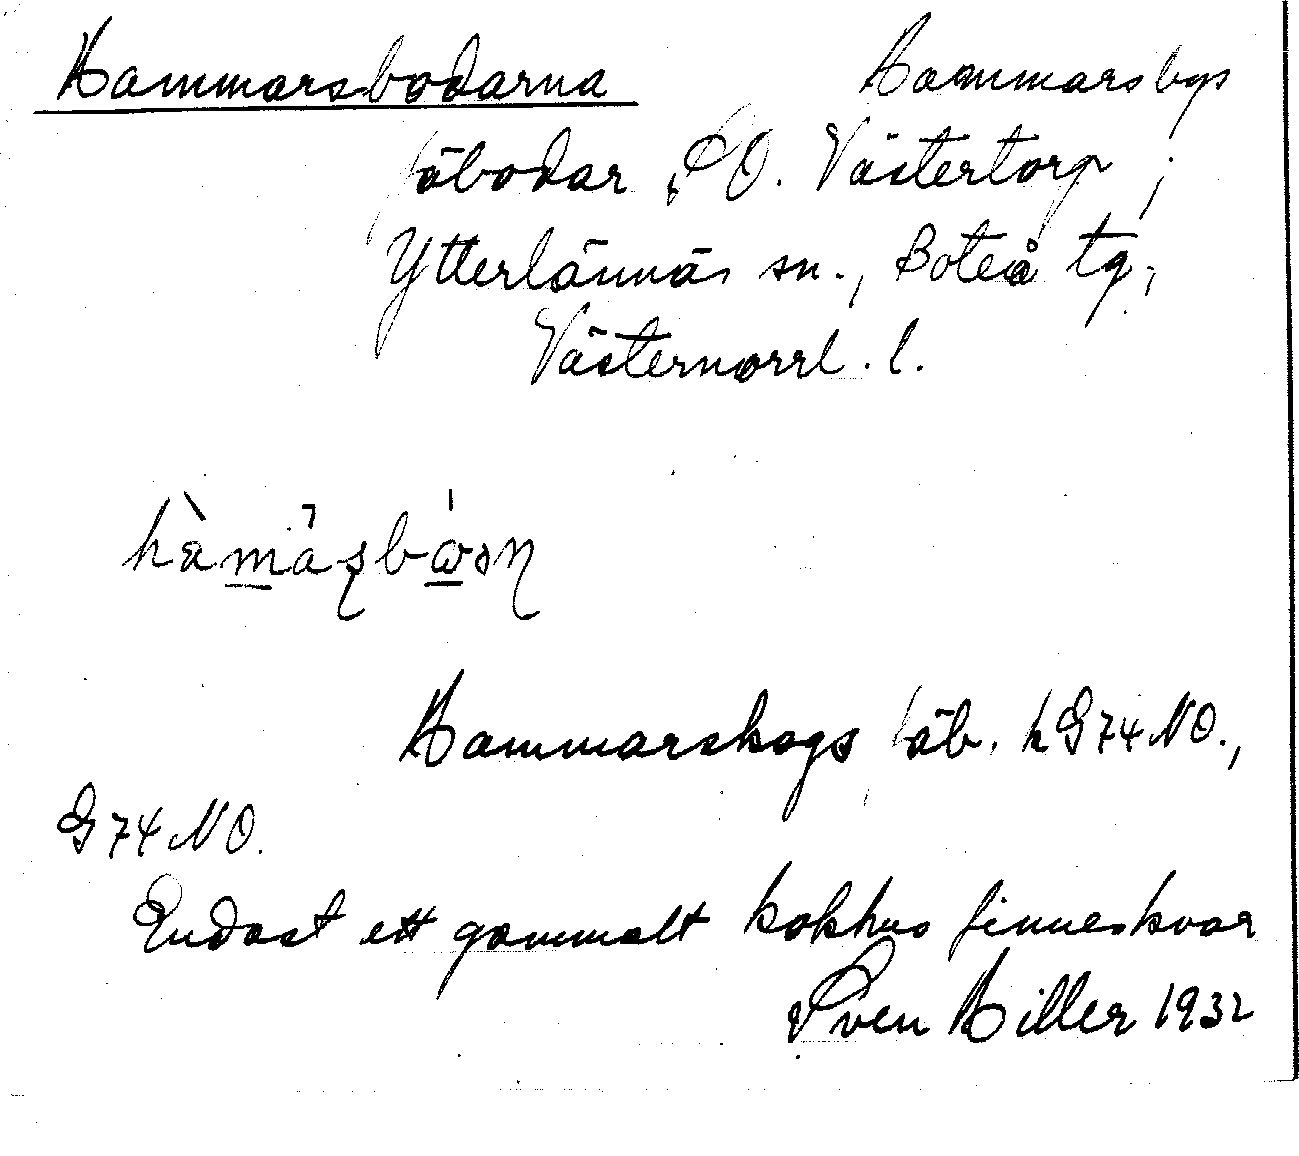 Hammarsbodarna Hammarsbys
fäbodar, SO. Västertorp;
Ytterlännäs sn., Boteå tg;
Västernorrl. l.
Hammarskogs fäb. k G74NO.,
G74NO.
Endast ett gammalt kokhus finnes kvar
Sven Hiller 1932